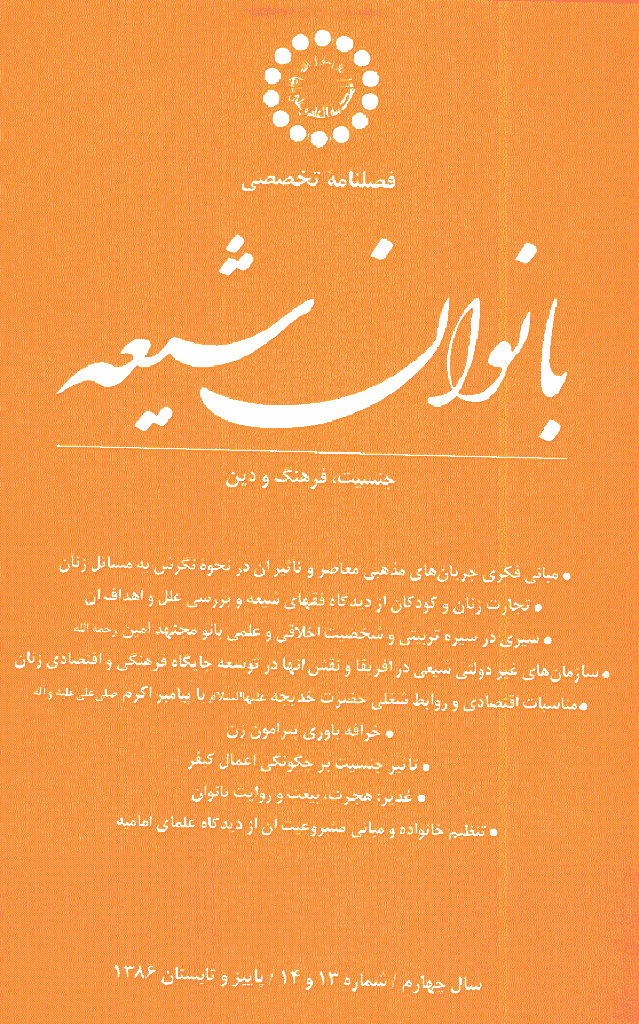 فصلنامهٔ تخصصی
بانوان شیعه
جنسیت، فرهنگ و دین
• مبانی فکری جریان‌های مذهبی معاصر و تاثیر ان در نحوه نگرش به مسائل زنان
• تجارت زنان و کودکان از دیدگاه فقهای شیعه و بررسی علل و اهداف ان
• سیری در سیره تربیتی و شخصیت اخلاقی و علمی بانو مجتهد امین رحمه الله
• سازمان‌های غیر دولتی شیعی در افریقا و نقش انها در توسعه جایگاه فرهنگی و اقتصادی زنان
• مناسبات اقتصادی و روابط شغلی حضرت خدیجه علیهاالسلام با پیامبر اکرم صلی‌الله علیه و آله
• خرافه باوری پیرامون زن
• تأثیر جنسیت بر چگونگی اعمال کیفر
• غدیر: هجرت، بیعت و روایت بانوان
• تنظیم خانواده و مبانی مشروعیت ان از دیدگاه علمای امامیه
سال چهارم / شماره ۱۳ و ۱۴ / پاییز و تابستان ۱۳۸۶